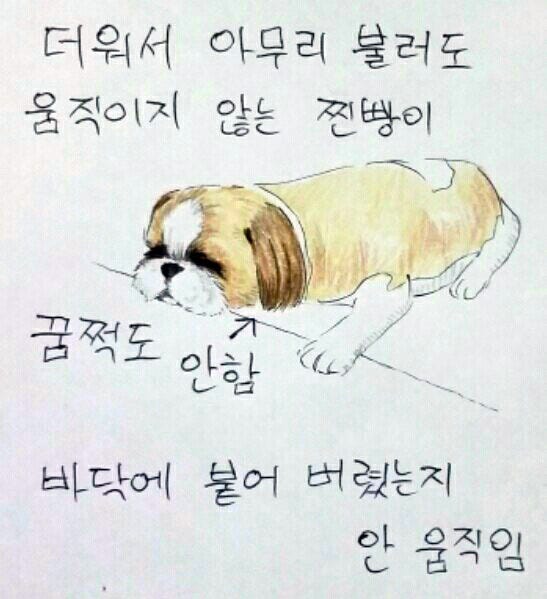 더워서 아무리 불러도
움직이지 않는 찐빵이
꿈쩍도
안함
바닥에 붙어 버렸는지
안 움직임